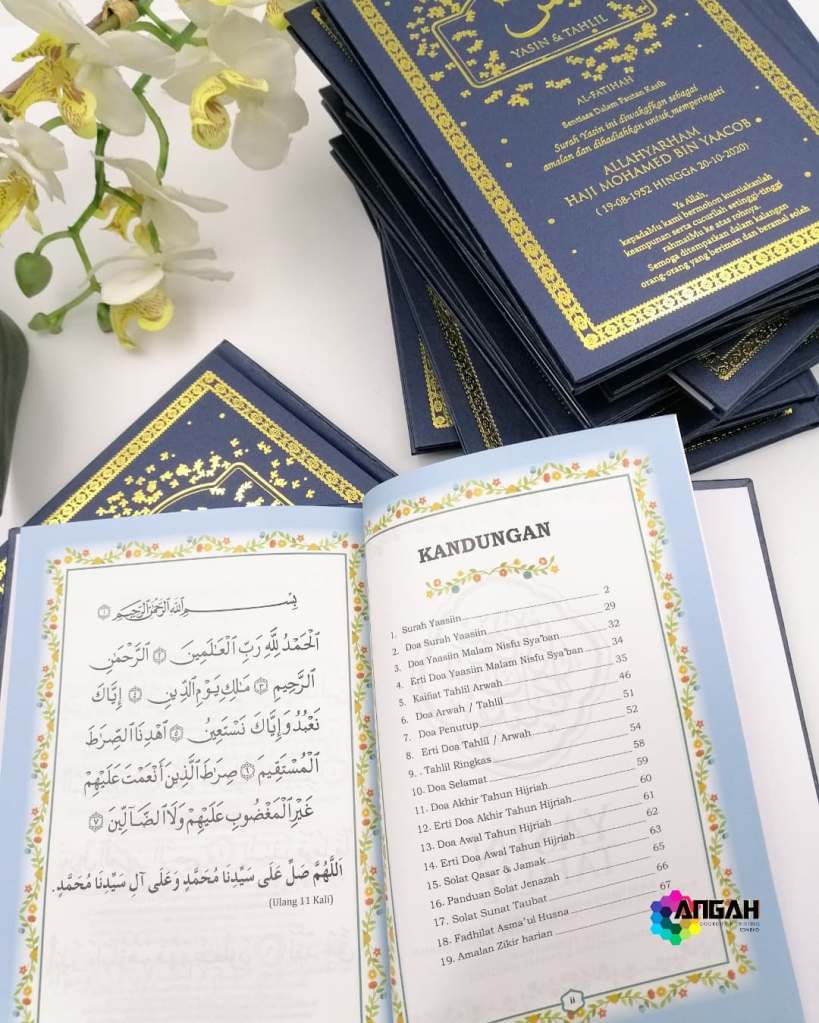 يس
YASIN & TAHLIL
AL-FATIHAH
Sentiasa Dalam Pautan Kasih
Surah Yasin ini diwakafkan sebagai
amalan dan dihadiahkan untuk memperingati
ALLAHYARHAM
HAJI MOHAMED BIN YAACOB
( 19-08-1952 HINGGA 20-10-2020)
Ya Allah,
kepadaMu kami bermohon kurniakanlah
keampunan serta cucurilah setinggi-tinggi
rahmatMu ke atas rohnya.
Semoga ditempatkan dalam kalangan
orang-orang yang beriman dan beramal soleh
بِسْمِ ٱللَّهِ ٱلرَّحْمَٰنِ ٱلرَّحِيمِ ١
ٱلْحَمْدُ لِلَّهِ رَبِّ ٱلْعَٰلَمِينَ ٢ ٱلرَّحْمَٰنِ
ٱلرَّحِيمِ ٣ مَٰلِكِ يَوْمِ ٱلدِّينِ ٤ إِيَّاكَ
نَعْبُدُ وَإِيَّاكَ نَسْتَعِينُ ٥ ٱهْدِنَا ٱلصِّرَٰطَ
ٱلْمُسْتَقِيمَ ٦ صِرَٰطَ ٱلَّذِينَ أَنْعَمْتَ عَلَيْهِمْ
غَيْرِ ٱلْمَغْضُوبِ عَلَيْهِمْ وَلَا ٱلضَّآلِّينَ ٧
اَللَّهُمَّ صَلِّ عَلَى سَيِّدِنَا مُحَمَّدٍ وَعَلَى آلِ سَيِّدِنَا مُحَمَّدٍ.
(Ulang 11 Kali)
KANDUNGAN
1. Surah Yaasiin 2
2. Doa Surah Yaasiin 29
3. Doa Yaasiin Malam Nisfu Sya'ban 32
4. Erti Doa Yaasiin Malam Nisfu Sya'ban 34
5. Kaifiat Tahlil Arwah 35
6. Doa Arwah / Tahlil 46
7. Doa Penutup 51
8. Erti Doa Tahlil / Arwah 52
9. . Tahlil Ringkas 54
10. Doa Selamat 58
11. Doa Akhir Tahun Hijriah 59
12. Erti Doa Akhir Tahun Hijriah 60
13. Doa Awal Tahun Hijriah 61
14. Erti Doa Awal Tahun Hijriah 62
15. Solat Qasar & Jamak 63
16. Panduan Solat Jenazah 65
17. Solat Sunat Taubat 66
18. Fadhilat Asma'ul Husna 67
19. Amalan Zikir harian
ii
ANGAH